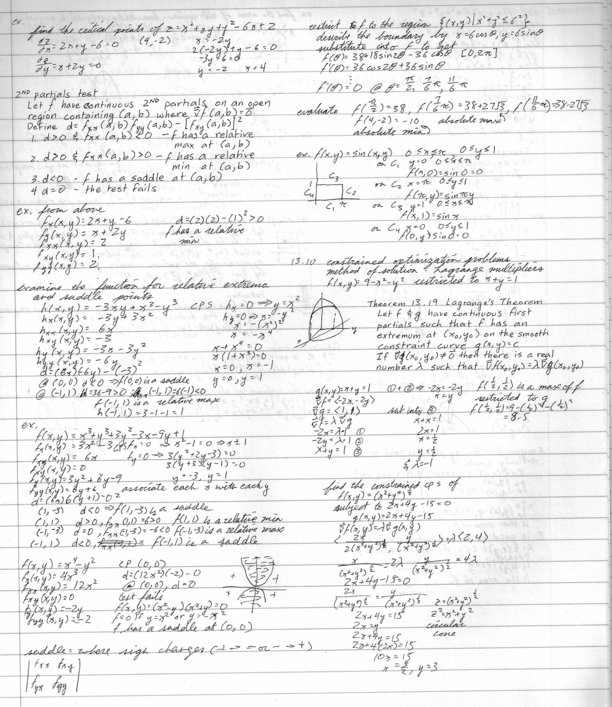 ex.
find the critical points of z=x²+xy+y²-6x+2
∂z/∂x=2x+y-6=0 (4,-2) x=-2y
2(-2y)+y-6=0
∂z/∂y=x+2y=0 -3y=6=0
y=-2 x=4
2ND partials test
Let f have continuous 2ND partials on an open
region containing (a,b) where ∇f(a,b)=0
Define d=fxx(a,b)fyy(a,b)-[fxy(a,b)]²
1. d>0 & fxx(a,b)<0 - f has a relative
max at (a,b)
2. d>0 & fxx(a,b)>0 - f has a relative
min at (a,b)
3. d<0 - f has a saddle at (a,b)
4 d=0 - the test fails
ex. from above
fx(x,y)=2x+y-6 d=(2)(2)-(1)²>0
fy(x,y)=x+2y f has a relative
fxx(x,y)=2 min
fxy(x,y)=1
fyy(x,y)=2
examine the function for relative extrema
and saddle points
h(x,y)=-3xy+x³-y³ CPS hx=0⇒y=x²
hx(x,y)=-3y+3x² hy=0⇒x=-y²
hxx(x,y)=6x x=-(x²)²
hxy(x,y)=-3 x=-x⁴
hy(x,y)=-3x-3y² x+x⁴=0
hyy(x,y)=-6y x(1+x³)=0
d=(6x)(-6y)-(-3)² x=0, x=-1
@ (0,0) d<0 ⇒f(0,0) is a saddle y=0, y=1
@ (-1,1) d=36-9>0 hxx(-1,1)=6(-1)<0
f(-1,1) is a relative max
h(-1,1)=3-1-1=1
ex.
f(x,y)=x³+y³+3y²-3x-9y+1
fx(x,y)=3x²-3 fx=0⇒x²-1=0⇒x±1
fxx(x,y)=6x fy=0⇒3(y²+2y-3)=0
fxy(x,y)=0 3(y+3)(y-1)=0
fy(x,y)=3y²+6y-9 y=-3, y=1
fyy(x,y)=6y+6 associate each x with each y
d=(6x)6(y+1)-0²
(1,-3) d<0⇒f(1,-3) is a saddle
(1,1) d>0, fxx(1,1)=6>0 f(1,1) is a relative min
(-1,-3) d>0, fxx(-1,-3)=-6<0 f(-1,-3) is a relative max
(-1,1) d<0, f(-1,1) is a saddle
f(x,y)=x⁴-y² CP (0,0)
fx(x,y)=4x³ d=(12x²)(-2)-0
fxx(x,y)=12x² @ (0,0), d=0
fxy(x,y)=0 test fails
fy(x,y)=-2y f(x,y)=(x²-y)(x²+y)=0
fyy(x,y)=-2 f=0 if y=x² or y=-x²
f has a saddle at (0,0)
+ - + -
saddle = where sign changes (+→- or -→+)
fxx fxy
fyx fyy
restrict f to the region {(x,y)|x²+y²≤6²}
describe the boundary by x=6cosθ, y=6sinθ
substitute into f to get
f(θ)=38+18sin2θ-36cosθ [0,2π]
f'(θ)=36cos2θ+36sinθ
f'(θ)=0 @ θ=π/2, 7/6π, 11/6π
evaluate f(π/2)=38, f(7/6π)=38+27√3, f(11/6π)=38-27√3
f(4,-2)=-10 absolute max
absolute min
ex. f(x,y)=sin(xy) 0≤x≤π 0≤y≤1
on C₁ y=0 0≤x≤π
f(x,0)=sin0=0
on C₂ x=π 0≤y≤1
f(π,y)=sinπy
on C₃ y=1 0≤x≤π
f(x,1)=sinx
on C₄ x=0 0≤y≤1
f(0,y)sin0=0
1 C₃ C₄ C₂ C₁ π
13.10 constrained optimization problems
method of solution - Lagrange multipliers
f(x,y)=9-x²-y² restricted to x+y=1
Theorem 13.19 Lagrange's Theorem
Let f & g have continuous first
partials such that f has an
extremum at (x₀,y₀) on the smooth
constraint curve g(x,y)=c
If ∇g(x₀,y₀)≠0 then there is a real
number λ such that ∇f(x₀,y₀)=λ∇g(x₀,y₀)
g(x,y)=x+y=1 ①+②⇒-2x=-2y f(½,½) is a max of f
∇f=<-2x,-2y> x=y restricted to g
∇g=<1,1> f(½,½)=9-(½)²-(½)²
∇f=λ∇g sub into ③ =8.5
-2x=λ·1 ① x+x=1
-2y=λ·1 ② 2x=1
x+y=1 ③ x=½
y=½
& λ=-1
find the constrained cps of
f(x,y)=(x²+y²)^½
subject to 2x+4y-15=0
g(x,y)=2x+4y-15
∇f(x,y)=λ∇g(x,y)
<2x/2(x²+y²)^½, y/(x²+y²)^½>=λ<2,4>
x/(x²+y²)^½=2λ y/(x²+y²)^½=4λ
2x+4y-15=0
2x/(x²+y²)^½=y/(x²+y²)^½ z=(x²+y²)^½
2x+4y=15 z²=x²+y²
2x=y circular
2x+4y=15 cone
2x+4(2x)=15
10x=15
x=3/2, y=3